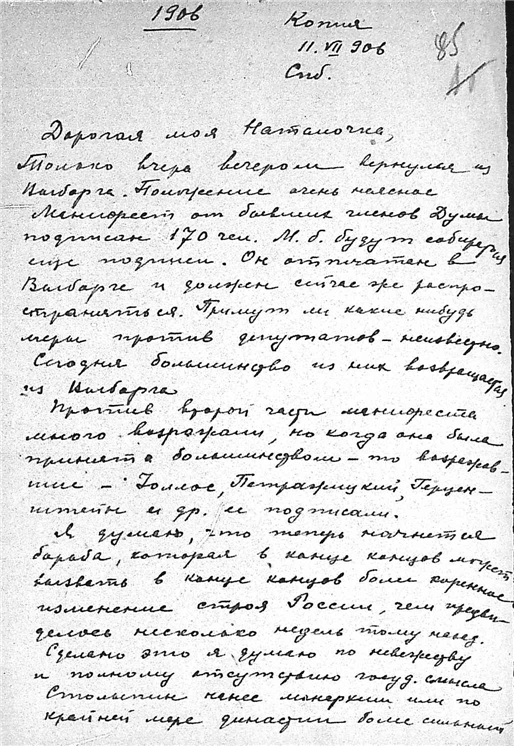 1906
Копия
11.VII 906
Спб.
85
Дорогая моя Наталочка,
Только вчера вечером вернулся из
Выборга. Положение очень неясное
Манифест от бывших членов Думы
подписан 170 чел. М. б. будут собираться
еще подписи. Он отпечатан в
Выборге и должен сейчас же распро-
страняться. Примут ли какие нибудь
меры против депутатов – неизвестно.
Сегодня большинство из них возвращается
из Выборга
Против второй части манифеста
много возражали, но когда она была
принята большинством – то возражав-
шие – Иоллос, Петражицкий, Герцен-
штейн и др. ее подписали.
Я думаю, что теперь начнется
борьба, которая в конце концов может
вызвать в конце концов более коренное
изменение строя России, чем предви-
делось несколько недель тому назад.
Сделано это я думаю по невежеству
и полному отсутствию госуд. смысла
Столыпин нанес монархии или по
крайней мере династии более сильный